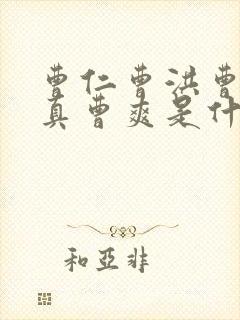 曹仁曹洪曹
真曹爽是什
和亚非